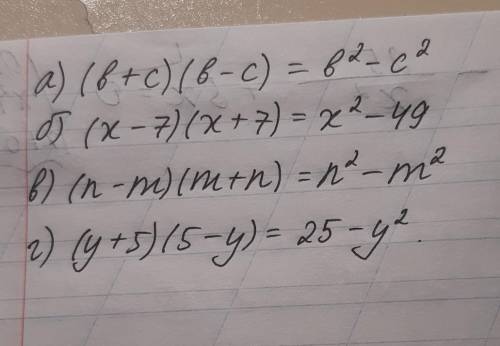 а) (в+с)(в-с) = в²-с²
б) (x-7)(x+7) = x²-49
в) (n-m)(m+n) = n²-m²
г) (y+5)(5-y) = 25-y².